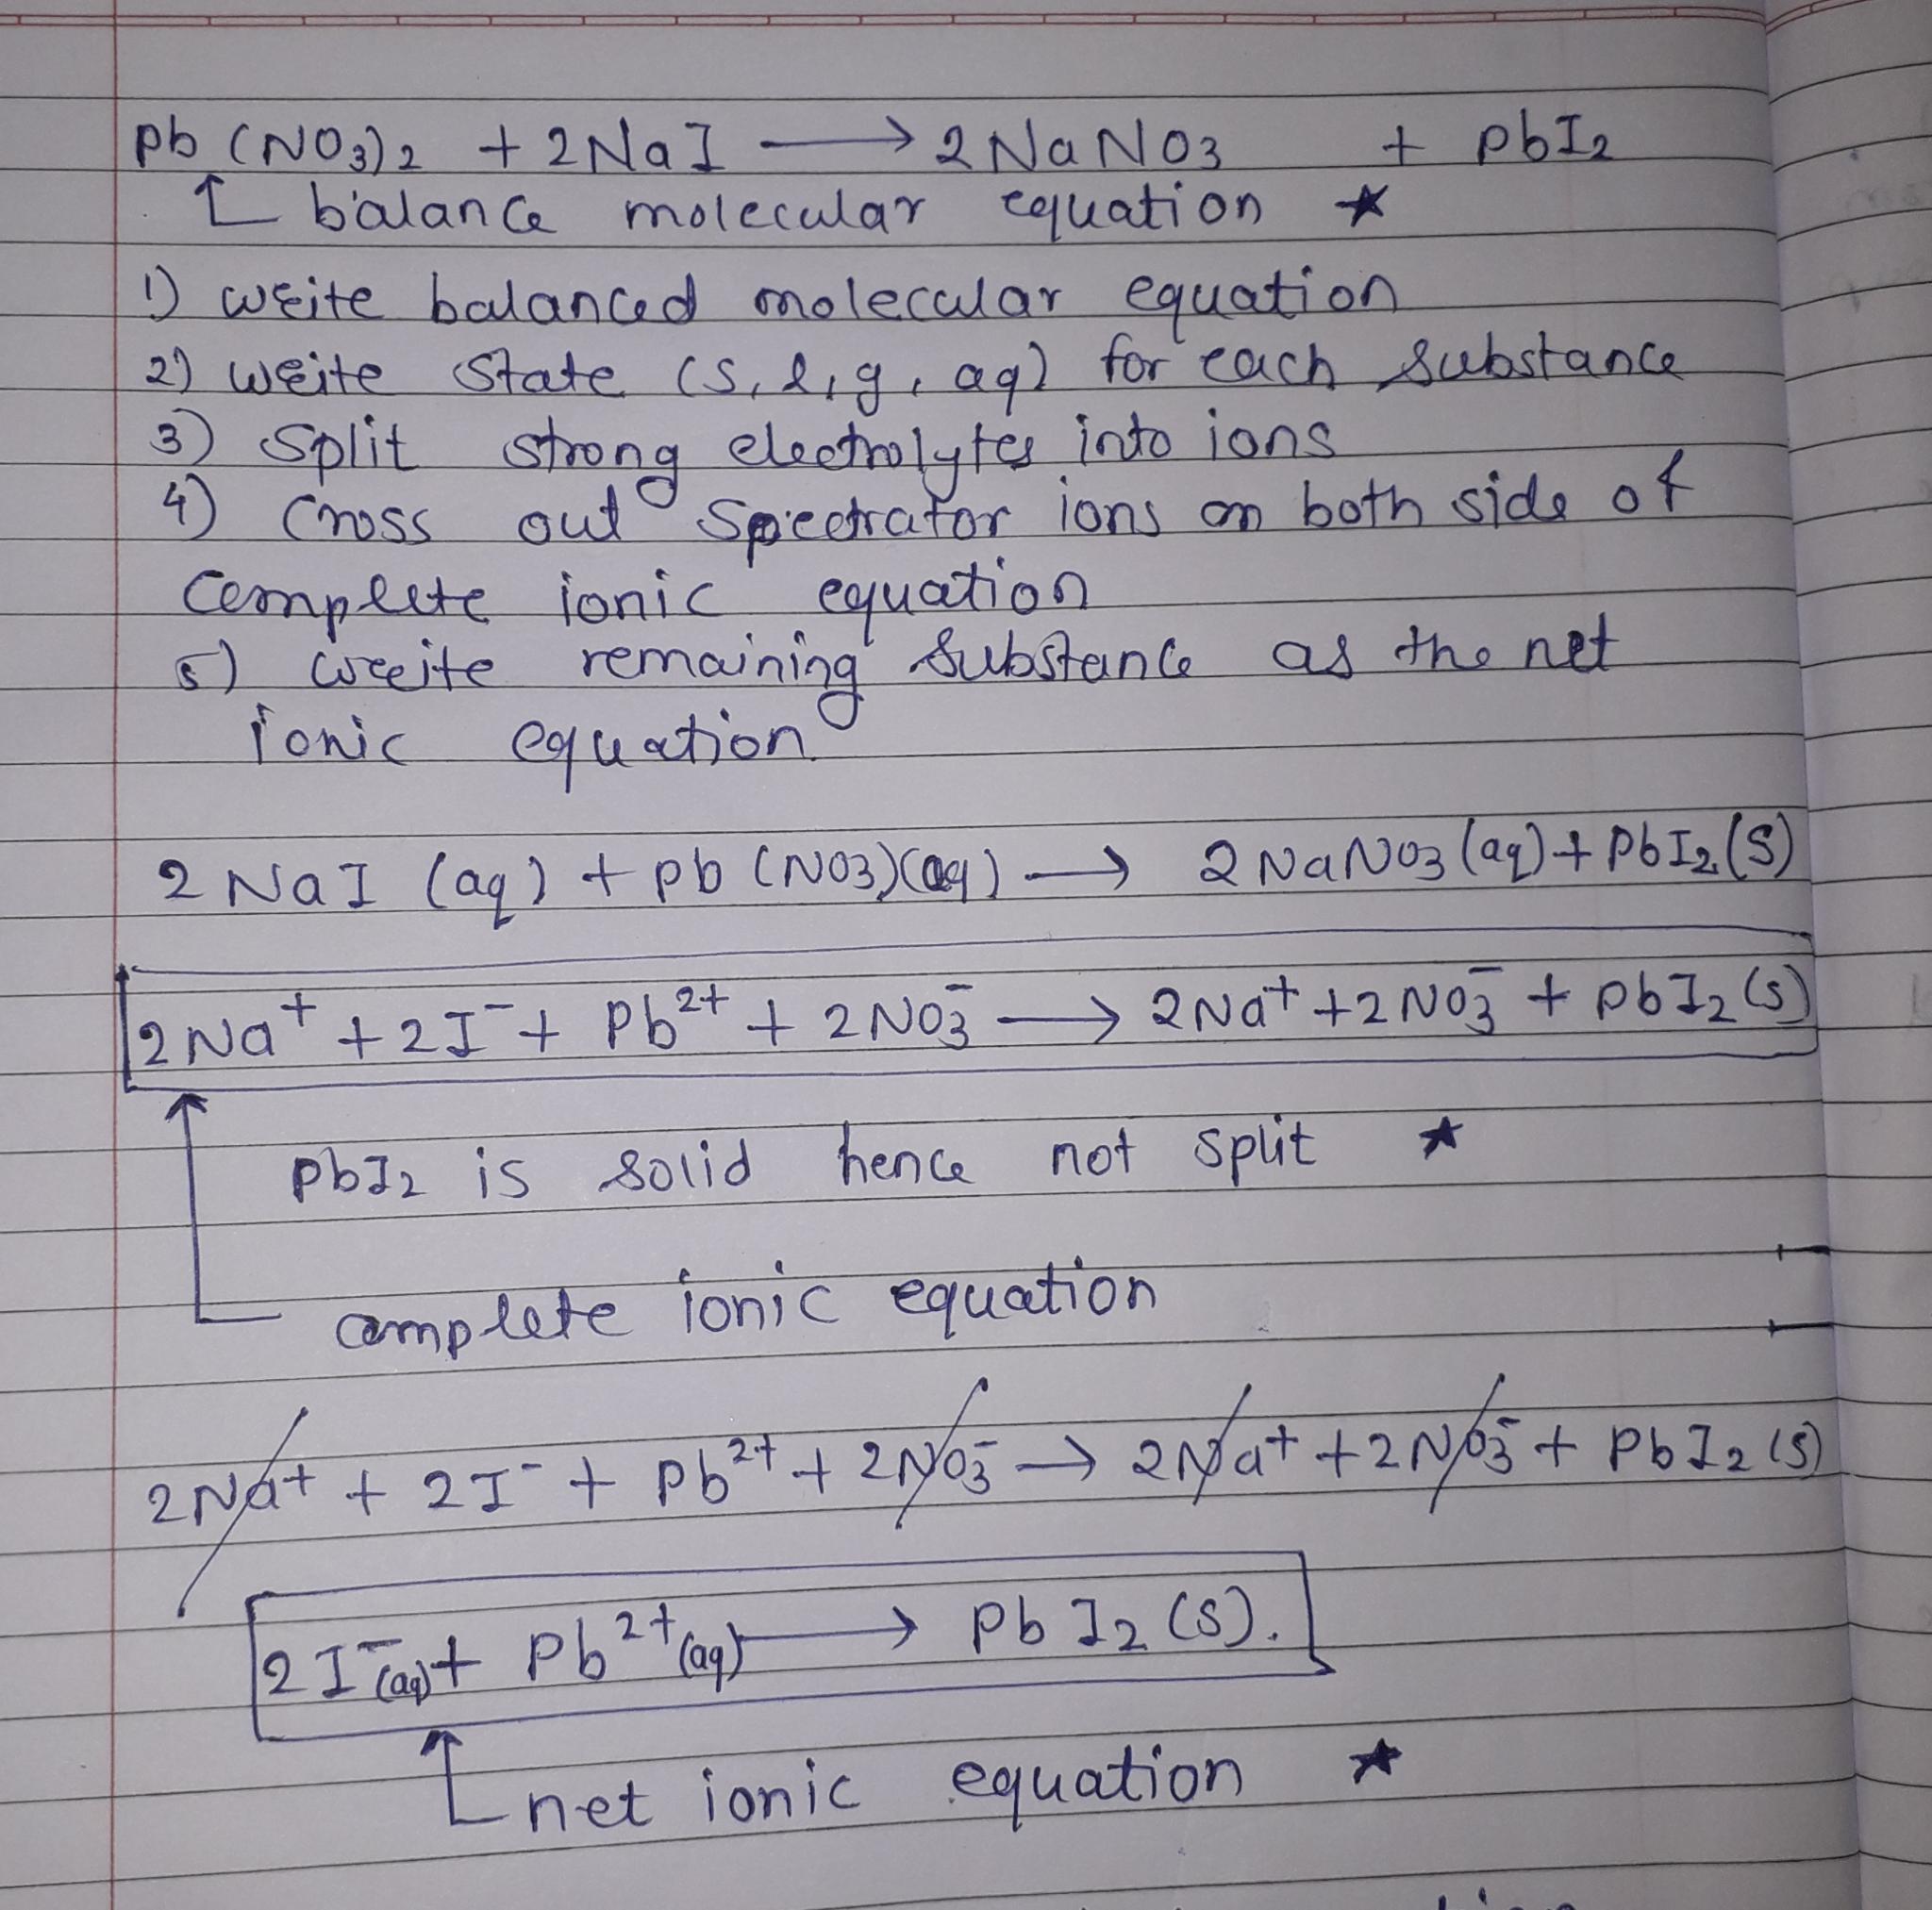 Pb (NO3)2 + 2NaI ⟶ 2NaNO3 + PbI2
↑ balance molecular equation ★
1) write balanced molecular equation
2) write state (s, l, g, aq) for each substance
3) split strong electrolytes into ions
4) cross out spectrator ions on both side of
complete ionic equation
5) write remaining substance as the net
ionic equation
2 NaI (aq) + Pb (NO3)(aq) ⟶ 2 NaNO3 (aq) + PbI2 (s)
2Na⁺ + 2I⁻ + Pb²⁺ + 2NO3⁻ ⟶ 2Na⁺ + 2NO3⁻ + PbI2 (s)
PbI2 is solid hence not split ★
complete ionic equation
2Na⁺ + 2I⁻ + Pb²⁺ + 2NO3⁻ → 2Na⁺ + 2NO3⁻ + PbI2 (s)
2I⁻(aq) + Pb²⁺(aq) ⟶ PbI2 (s).
net ionic equation ★